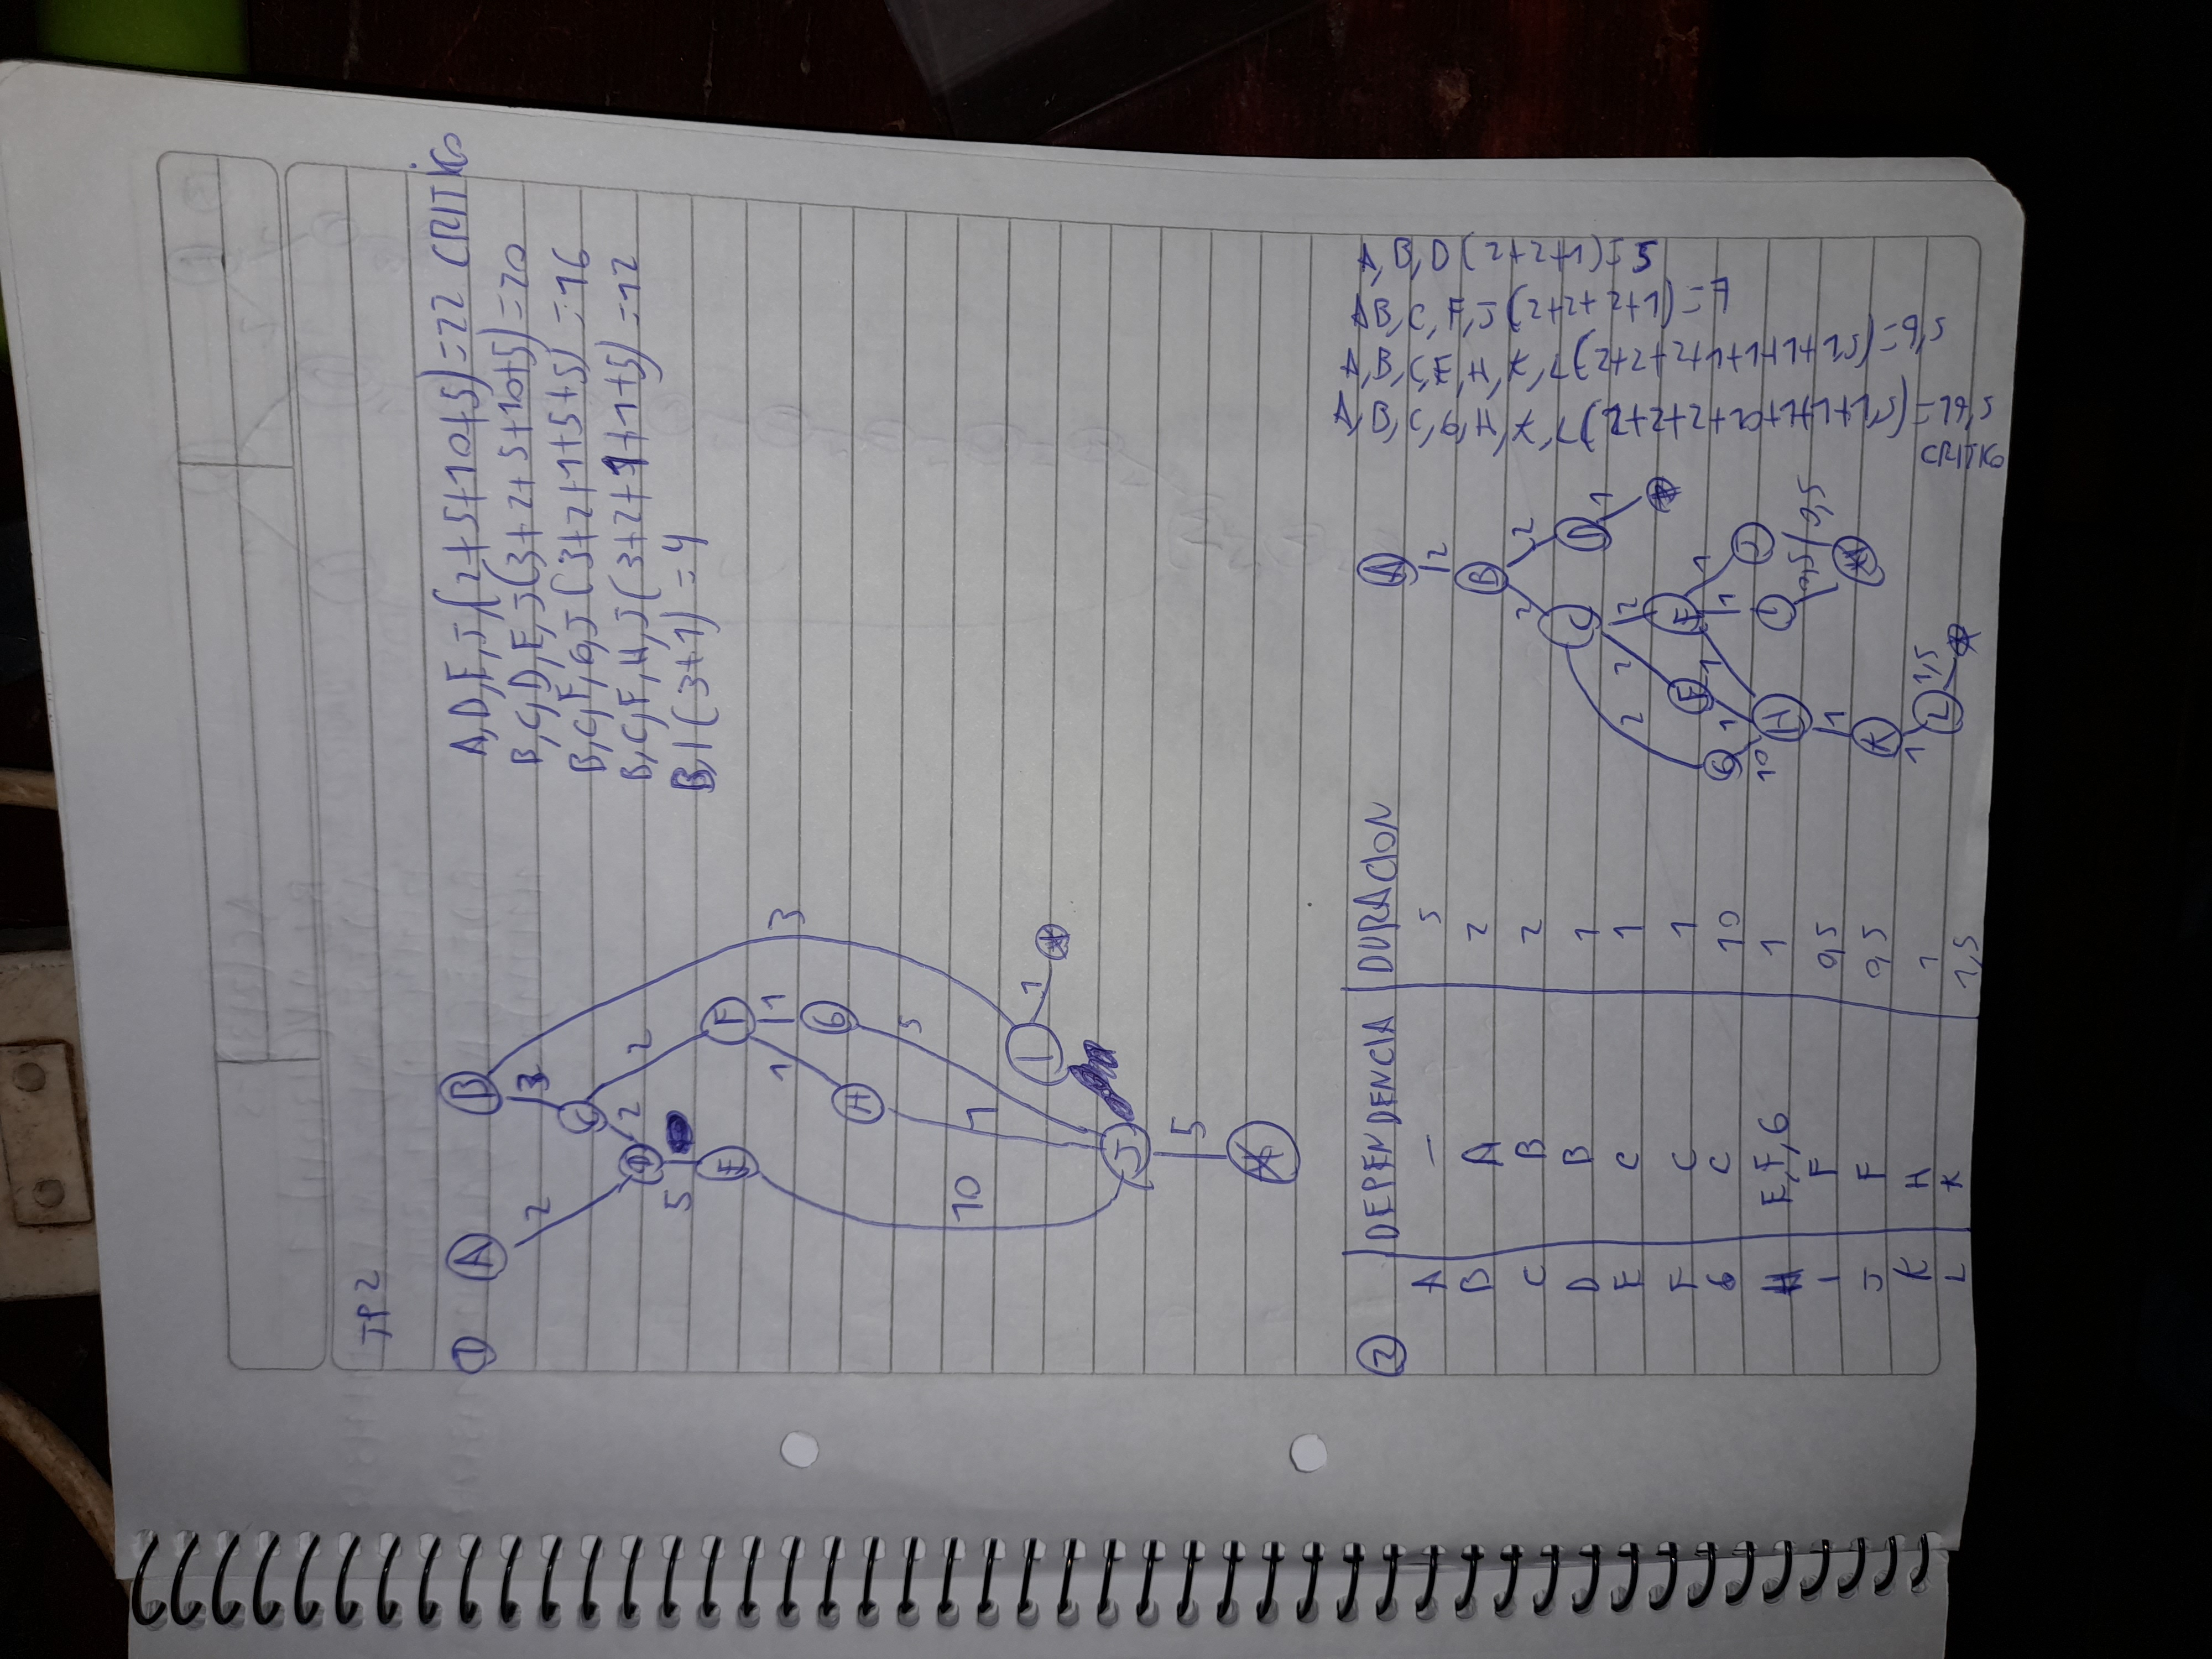 TP2
① A B
2 3
C
D 2 2
5
E F
1 1 3
H G
5
10 1
I 1 *
J
5
*
A, D, E, J, (2+5+10+5)=22 CRITICO
B, C, D, E, J (3+2+5+10+5)=20
B, C, F, G, J (3+2+1+5+5) =16
B, C, F, H, J (3+2+1+1+5) =12
B, I (3+1) = 4
② DEPENDENCIA DURACION
A — 5
B A 2
C B 2
D B 1
E C 1
F C 1
G C 10
H E, F, G 1
I F 0,5
J F 0,5
K H 1
L K 1,5
A
2
B
2 2
C D
2 2 2 1
E F *
G 1 1 1 1
10 H I J
0,5 0,5
1 *
K
1 1,5
L *
A, B, D (2+2+1)=5
A,B,C, F, J (2+2+2+1) =7
A,B,C,E,H,K,L(2+2+2+1+1+1+1,5)=9,5
A,B,C,G,H,K,L(2+2+2+10+1+1+1,5)=19,5
CRITICO